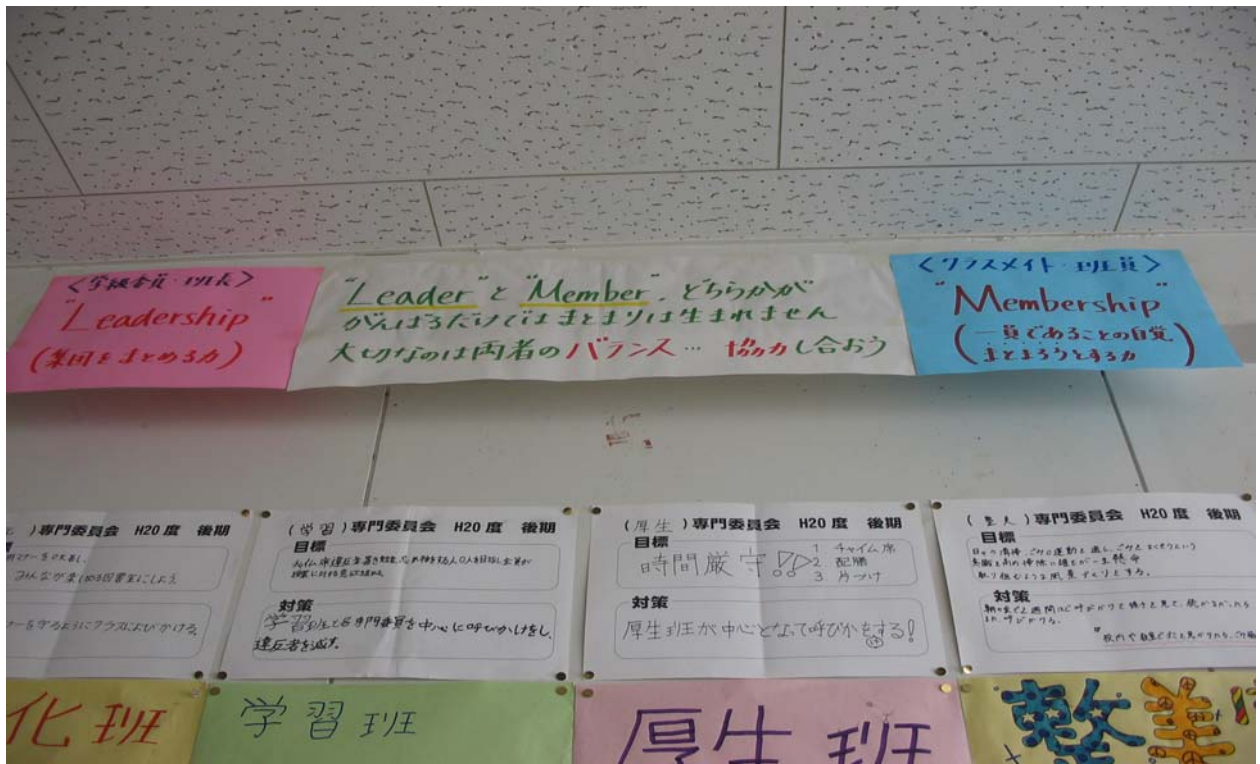 〈学級委員・班長〉
"Leadership"
(集団をまとめる力)
"Leader"と"Member"。どちらかが
がんばるだけではまとまりは生まれません
大切なのは両者のバランス… 協力し合おう
〈クラスメイト・班員〉
"Membership"
(一員であることの自覚
まとまろうとする力)
)専門委員会 H20度 後期
みんなが楽しめる図書室にしよう
を守るようにクラスによびかける。
化班
(学習)専門委員会 H20度 後期
目標
対策
学習班と各専門委員を中心に呼びかけをし、
違反者を減す。
学習班
(厚生)専門委員会 H20度 後期
目標
時間厳守!!
1 チャイム席
2. 配膳
3. 片づけ
対策
厚生班が中心となって呼びかをする!
け
厚生班
(整美)専門委員会 H20度 後期
目標
対策
整美